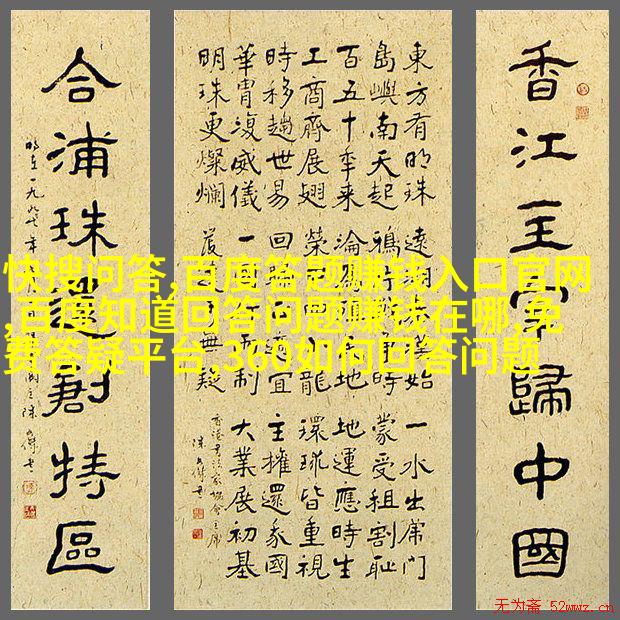 香江主歸中國
東方有明珠遠始一水出屏門
島嶼南天起鴉時蒙受租割恥
百五十季來淪地地運應時生
工商齊展翅榮龍環球皆重視
時移趨世易回適宜主權還家國
華胄復威儀一制大業展初基
明珠更燦爛無疑
香港書法家協會主席
合浦珠還創特區
一九九七年
快搜问答,百度答题赚钱入口官网
,百度知道回答问题赚钱在哪,免
费答疑平台,360如何回答问题
无为斋 52wwz.cn